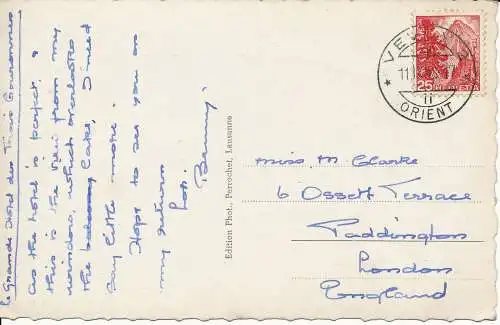 Le Grande Hotel des Trois Couronnes
as the hotel is perfect. &
this is the view from my
window, which overlooks
the balcony, Lake, I need
say little more.
Hope to see you on
my return
Love
Benny.
Edition Phot., Perrochet, Lausanne
VEVEY
11
ORIENT
25
HELVETIA
Miss. M. Clarke
6 Ossett Terrace
Paddington
London
England